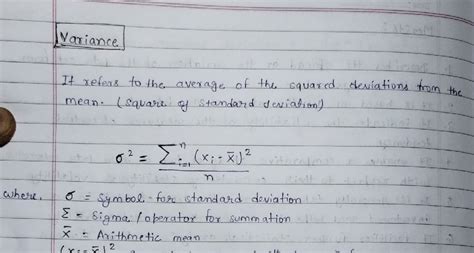 Variance
It refers to the average of the squared deviations from the
mean. (square of standard deviation)
σ² = Σⁿᵢ₌₁ (xᵢ - x̄)²
n
where, σ = Symbol for standard deviation
Σ = Sigma / operator for summation
x̄ = Arithmetic mean
(xᵢ - x̄)²